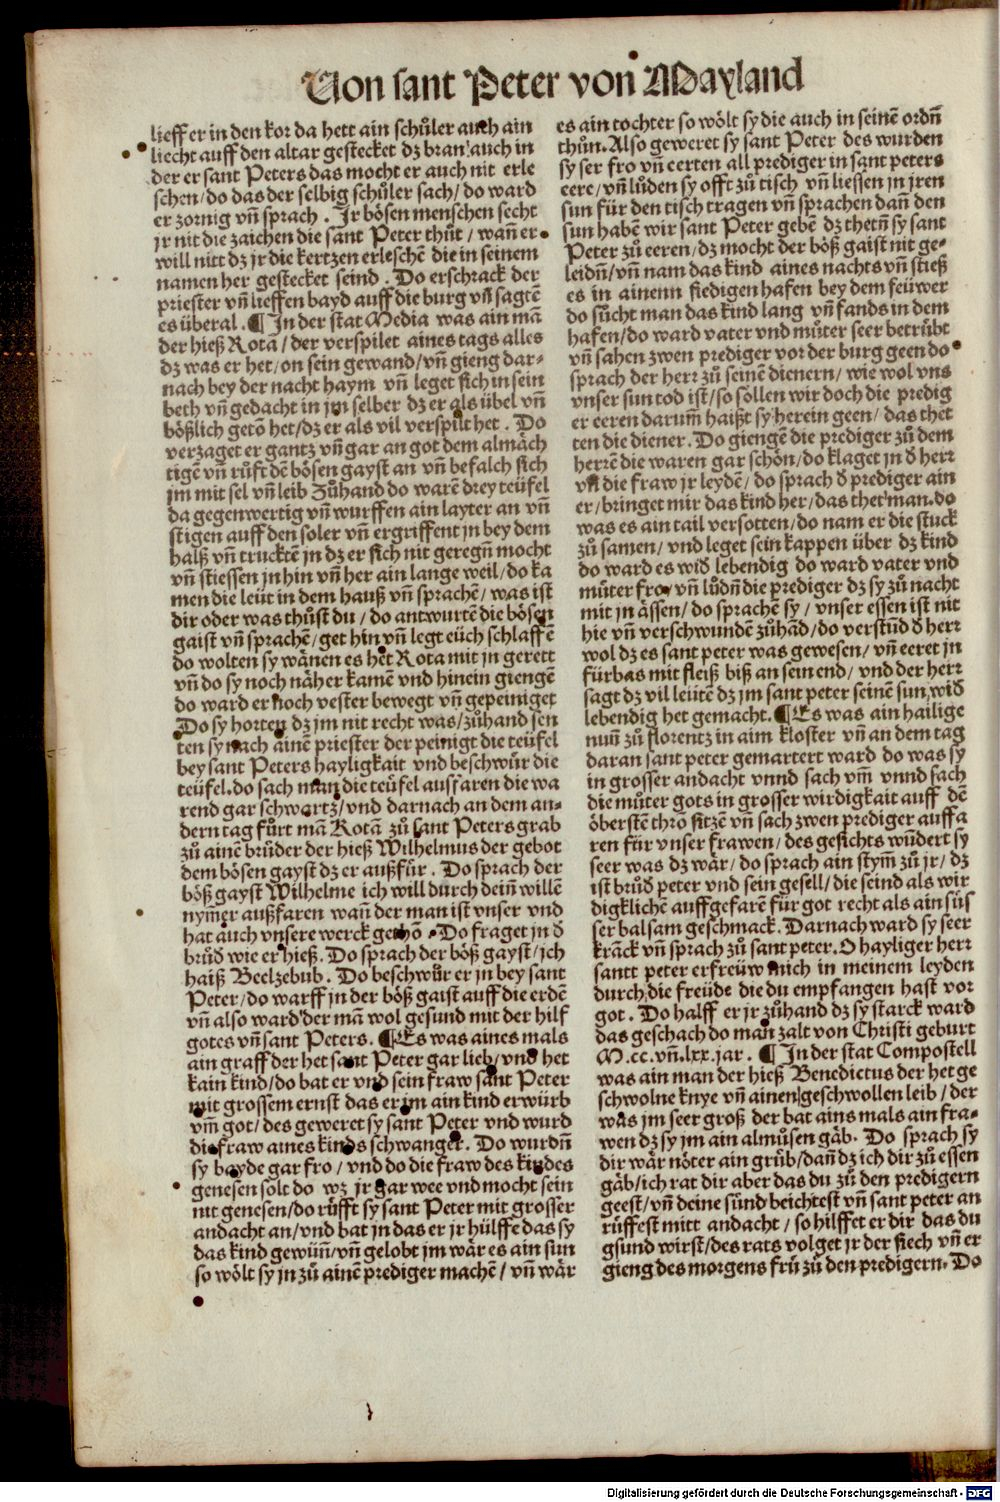 Von sant Peter von Mayland
lieff er in den kor da hett ain schůler auch ain
liecht auff den altar gestecket dz bran auch in
der er sant Peters das mocht er auch nit erle
schen/do das der selbig schůler sach/do ward
er zornig vñ sprach. Ir bösen menschen secht
jr nit die zaichen die sant Peter thůt/wañ er
will nitt dz jr die kertzen erleschẽ die in seinem
namen her gestecket seind. Do erschrack der
priester vñ lieffen bayd auff die burg vñ sagtẽ
es überal. ¶ In der stat Media was ain mã
der hieß Rota/der verspilet aines tags alles
dz was er het/on sein gewand/vñ gieng dar-
nach bey der nacht haym vñ leget sich in sein
beth vñ gedacht in jm selber dz er als übel vñ
bößlich getõ het/dz er als vil verspilt het. Do
verzaget er gantz vñ gar an got dem almäch
tigẽ vñ růft dẽ bösen gayst an vñ befalch sich
jm mit sel vñ leib Zůhand do warẽ drey teüfel
da gegenwertig vñ wurffen ain layter an vñ
stigen auff den soler vñ ergriffent jn bey dem
halß vñ trucktẽ jn dz er sich nit geregñ mocht
vñ stiessen jn hin vñ her ain lange weil/do ka
men die leüt in dem hauß vñ sprachẽ/was ist
dir oder was thůst du/do antwurtẽ die bösen
gaist vñ sprachẽ/get hin vñ legt eüch schlaffẽ
do wolten sy wänen es het Rota mit jn gerett
vñ do sy noch näher kamẽ vnd hinein giengẽ
do ward er noch vester bewegt vñ gepeiniget
Do sy horten dz jm nit recht was/zůhand sen
ten sy nach ainẽ priester der peinigt die teüfel
bey sant Peters hayligkait vnd beschwůr die
teüfel.do sach man die teüfel auß faren die wa
rend gar schwartz/vnd darnach an dem an-
dern tag fůrt mã Rotã zů sant Peters grab
zů ainẽ brůder der hieß Wilhelmus der gebot
dem bösen gayst dz er außfůr. Do sprach der
böß gayst Wilhelme ich will durch deiñ willẽ
nym̃er außfaren wañ der man ist vnser vnd
hat auch vnsere werck gethõ. Do fraget jn d̕
brůd̕ wie er hieß. Do sprach der böß gayst/ich
haiß Beelzebub. Do beschwůr er jn bey sant
Peter/do warff jn der böß gaist auff die erdẽ
vñ also ward der mã wol gesund mit der hilf
gotes vñ sant Peters. ¶ Es was aines mals
ain graff der het sant Peter gar lieb/vnd het
kain kind/do bat er vnd sein fraw sant Peter
mit grossem ernst das er jm ain kind erwürb
vm̃ got/des geweret sy sant Peter vnd wurd
die fraw aines kinds schwanger. Do wurdñ
sy bayde gar fro/vnd do die fraw des kindes
genesen solt do wz jr gar wee vnd mocht sein
nit genesen/do růfft sy sant Peter mit grosser
andacht an/vnd bat jn das er jr hülffe das sy
das kind gewüñ/vñ gelobt jm wär es ain sun
so wölt sy jn zů ainẽ prediger machẽ/vñ wär
es ain tochter so wölt sy die auch in seinẽ ordñ
thůn. Also geweret sy sant Peter des wurden
sy ser fro vñ eerten all prediger in sant peters
eere/vñ lůden sy offt zů tisch vñ liessen jn jren
sun für den tisch tragen vñ sprachen dañ den
sun habẽ wir sant Peter gebẽ dz thetñ sy sant
Peter zů eeren/dz mocht der böß gaist nit ge-
leidñ/vñ nam das kind aines nachts vñ stieß
es in ainenn siedigen hafen bey dem feüwer
do sůcht man das kind lang vñ fands in dem
hafen/do ward vater vnd můter seer betrůbt
vñ sahen zwen prediger vor der burg geen do
sprach der herr zů seinẽ dienern/wie wol vns
vnser sun tod ist/so söllen wir doch die predig
er eeren darum̃ haißt sy herein geen/das thet
ten die diener. Do giengẽ die prediger zů dem
herrẽ die waren gar schön/do klaget jn d̕ herr
vñ die fraw jr leydẽ/do sprach d̕ prediger ain
er/bringet mir das kind her/das thet man.do
was es ain tail versotten/do nam er die stuck
zů samen/vnd leget sein kappen über dz kind
do ward es wid̕ lebendig do ward vater vnd
můter fro/vñ lůdñ die prediger dz sy zů nacht
mit jn ässen/do sprachẽ sy/vnser essen ist nit
hie vñ verschwundẽ zůhãd/do verstůd d̕ herr
wol dz es sant peter was gewesen/vñ eeret jn
fürbas mit fleiß biß an sein end/vnd der herr
sagt dz vil leütẽ dz jm sant peter seinẽ sun wid̕
lebendig het gemacht. ¶ Es was ain hailige
nunñ zů florentz in aim kloster vñ an dem tag
daran sant peter gemartert ward do was sy
in grosser andacht vnnd sach vm̃ vnnd sach
die můter gots in grosser wirdigkait auff dẽ
öberstẽ thrõ sitzẽ vñ sach zwen prediger auffa
ren für vnser frawen/des gesichts wũdert sy
seer was dz wär/do sprach ain stym̃ zů jr/dz
ist brůd̕ peter vnd sein gesell/die seind als wir
digklichen auffgefarẽ für got recht als ain süs
ser balsam geschmack. Darnach ward sy seer
kranck vñ sprach zů sant peter. O hayliger herr
santt peter erfreüw mich in meinem leyden
durch die freüde die du empfangen hast vor
got. Do halff er jr zůhand dz sy starck ward
das geschach do man zalt von Christi geburt
M.cc.vñ.lxx.jar. ¶ In der stat Compostell
was ain man der hieß Benedictus der het ge
schwolne knye vñ ainen geschwollen leib/der
was jm seer groß der bat ains mals ain fra-
wen dz sy jm ain almůsen gäb. Do sprach sy
dir wär nöter ain grůb/dañ dz ich dir zů essen
gäb/ich rat dir aber das du zů den predigern
geest/vñ deine sünd beichtest vñ sant peter an
růffest mitt andacht/so hilffet er dir das du
gsund wirst/des rats volget jr der siech vñ er
gieng des morgens frů zů den predigern. Do
Digitalisierung gefördert durch die Deutsche Forschungsgemeinschaft - DFG